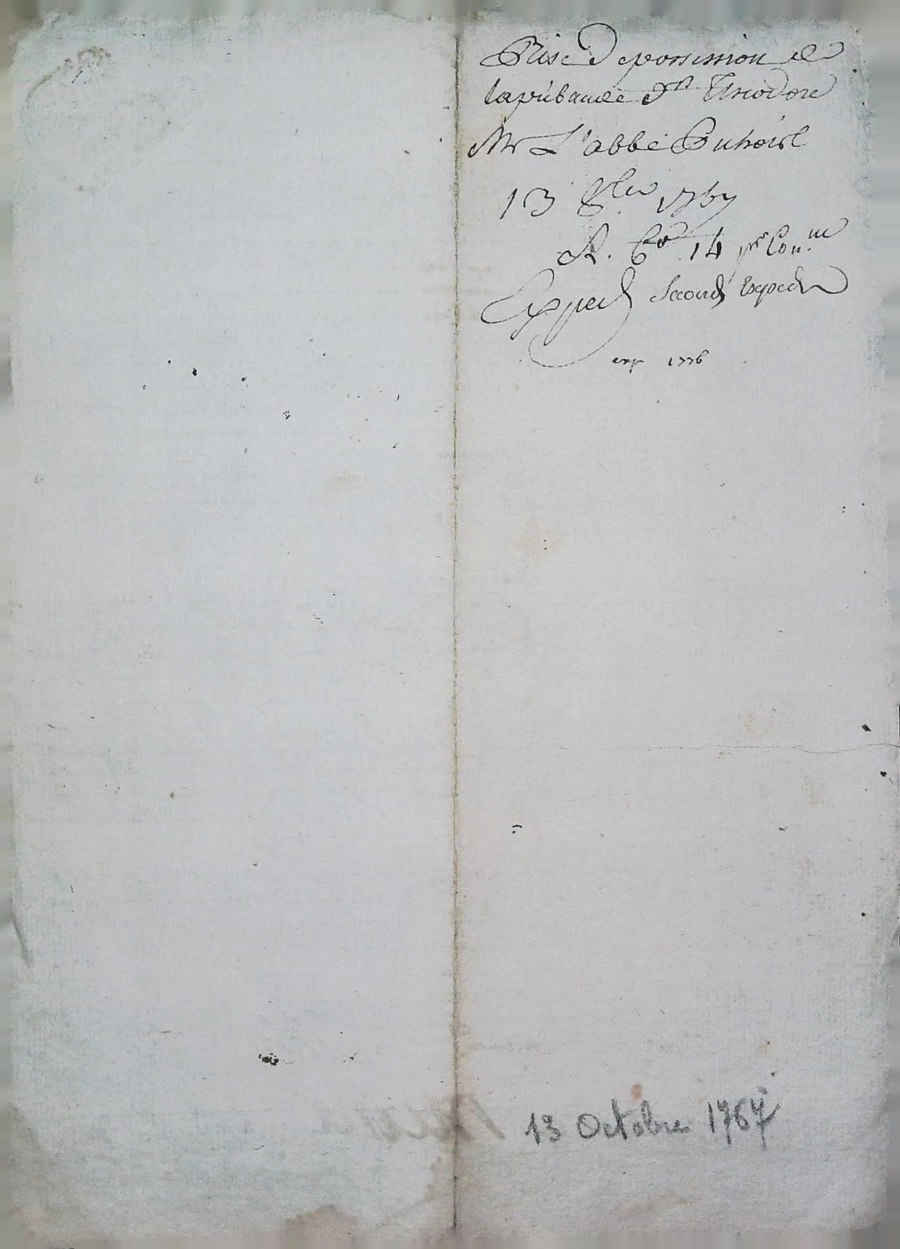 Prise De possession de
la prébande St Theodore
Mr L'abbé
13 8bre 1767
R. 14
Exped Second Exped
exp 1776
13 Octobre 1767